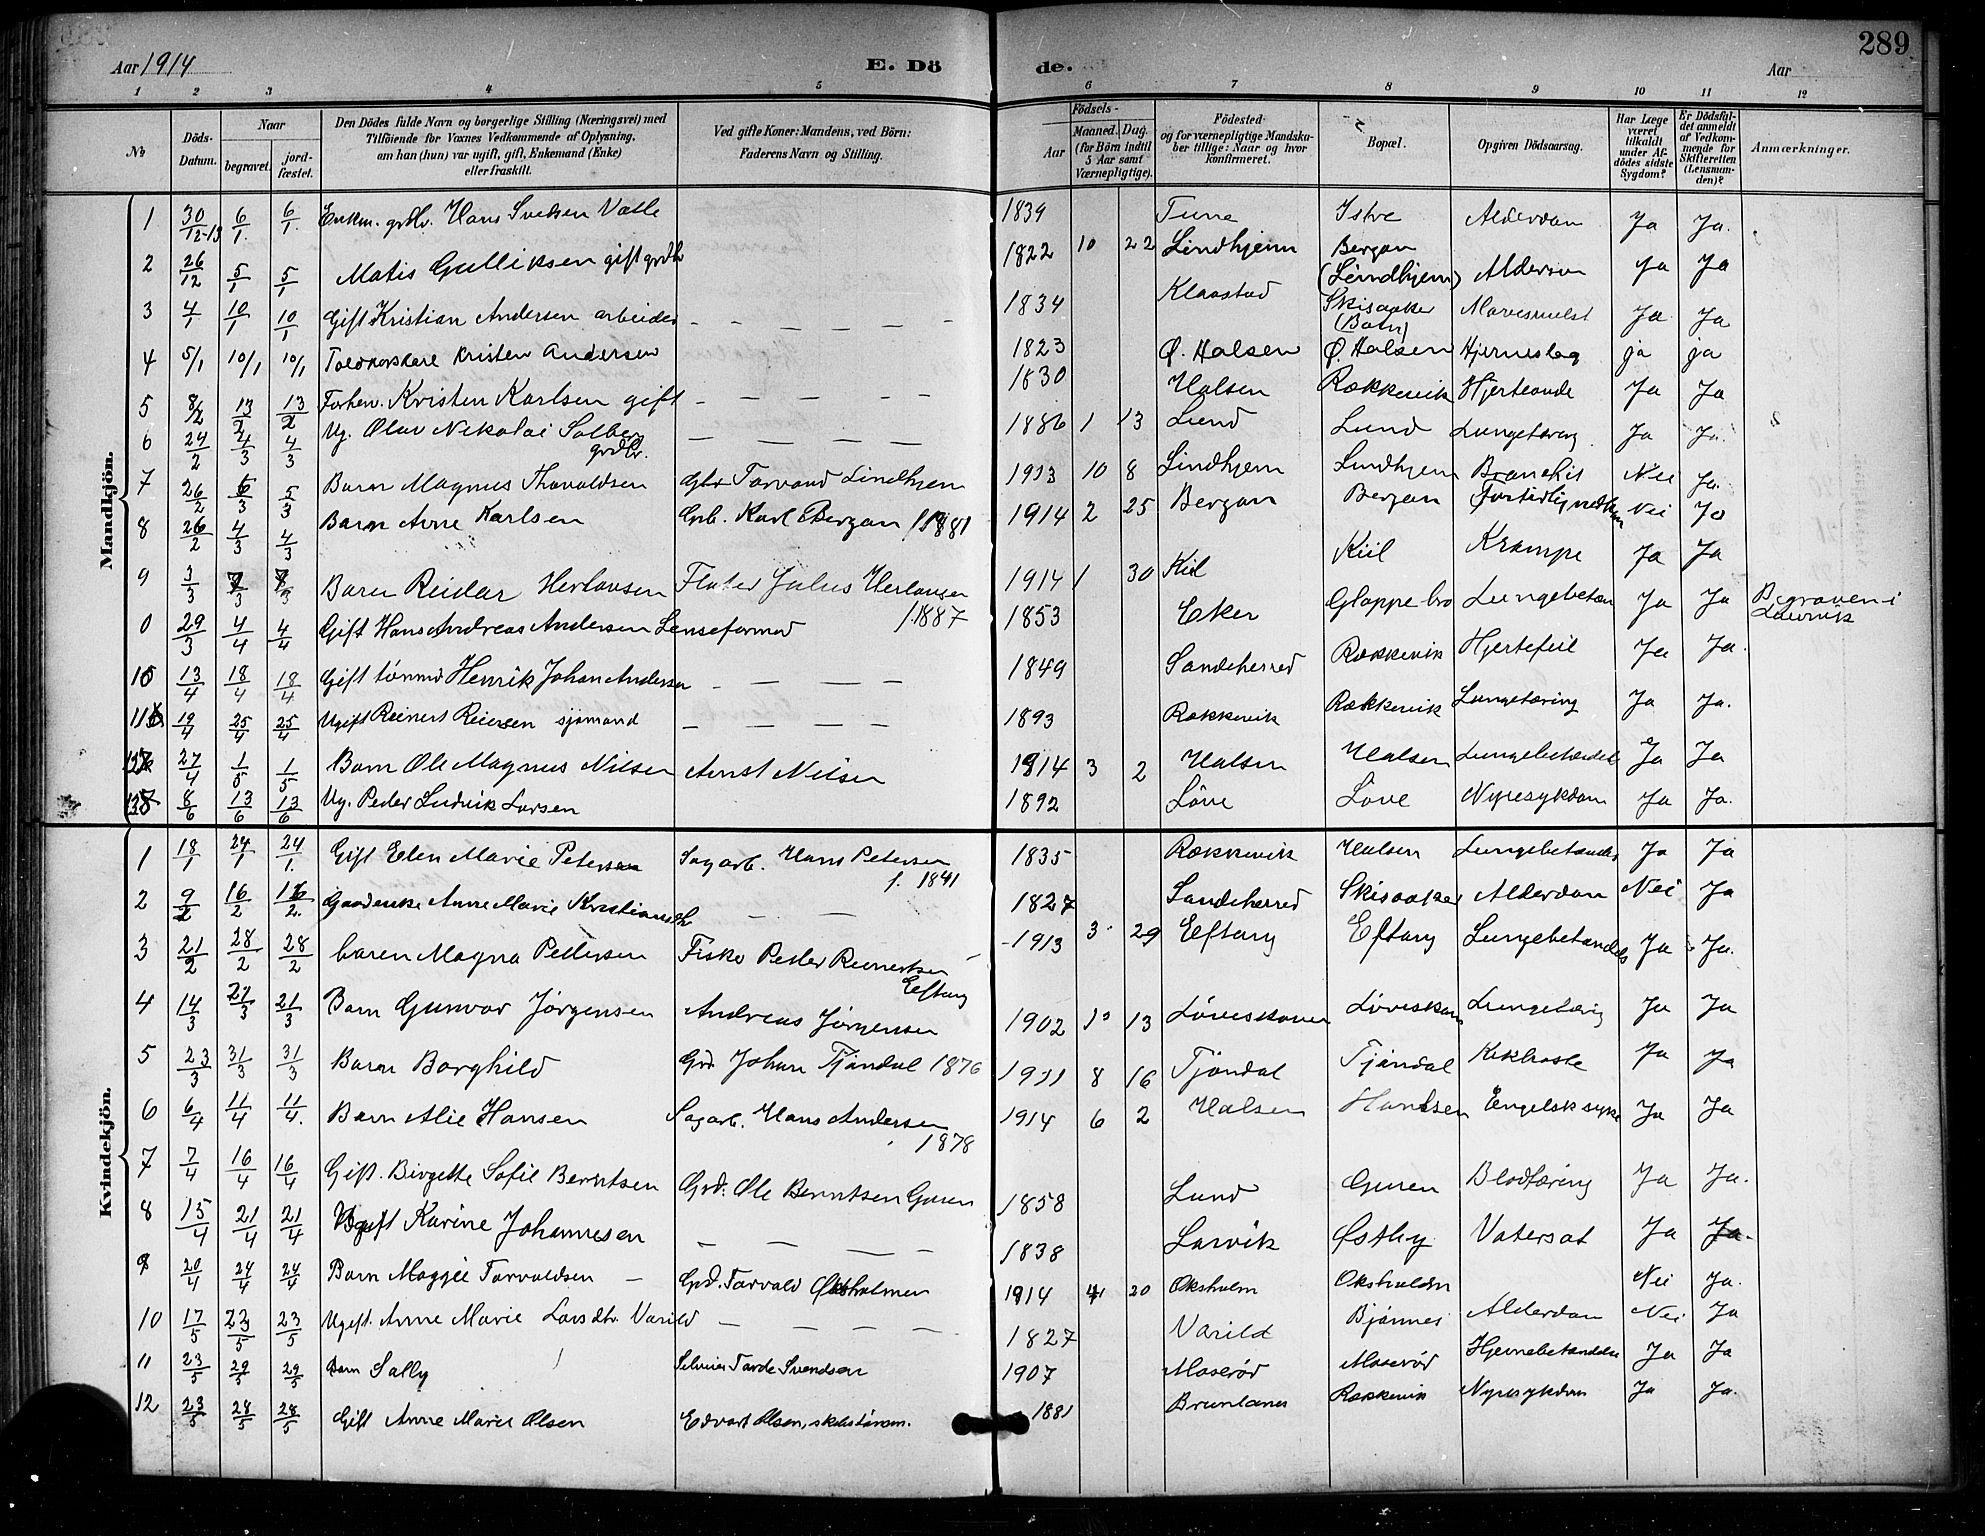 289
Aar 1914
E. Dö
de.
Aar
1 2 3 4 5 6 7 8 9 10 11 12
№
Döds-Datum.
Naar
begravet.
jord-fæstet.
Den Dödes fulde Navn og borgerlige Stilling (Næringsvei) med
Tilföiende for Voxnes Vedkommende af Oplysning,
om han (hun) var ugift, gift, Enkemand (Enke)
eller fraskilt.
Ved gifte Koner: Mandens, ved Börn:
Faderens Navn og Stilling.
Födsels-
Aar
Maaned. Dag.
(for Börn indtil
5 Aar samt
Værnepligtige).
Födested
og for værnepligtige Mandska-
ber tillige: Naar og hvor
konfirmeret.
Bopæl.
Opgiven Dödsaarsag.
Har Læge
været
tilkaldt
under Af-
dödes sidste
Sygdom?
Er Dödsfal-
det anmeldt
af Vedkom-
mende for
Skifteretten
(Lensman-
den)?
Anmærkninger.
Mandkjön.
1 30/12-13 6/1. 6/1. Enkm. grdbr. Hans Svedsen Valle 1839 Tune Istre Alderdom Ja Ja.
2 26/12 5/1 5/1 Matis Gulliksen gift grdbr 1822 10 22 Lindhjem Bergan (Lindhjem) Alderdom Ja Ja
3 4/1 10/1 10/1 Gift Kristian Andersen arbeider — — — — — 1834 Klaastad Skisaaker Ja Ja
4 5/1 10/1 10/1 Kristen Andersen 1823 Ø. Halsen Ø. Halsen Hjerneslag ja ja
5 8/2 13/2 13/2 Forhen. Kristen Karlsen gift — — — — — 1830 Halsen Rækkevik Ja Ja
6 24/2 4/3 4/3 Ug. Olav Nikolai Solberg grdbr. — — — — 1886 1 13 Lund Lund Lungetæring Ja Ja.
7 26/2 5/3 5/3 Barn Magnus Thovaldsen Gbr Torvand Lindhjem 1913 10 8 Lindhjem Lindhjem Bronchit Nei Ja.
8 26/2 4/3 4/3 Barn Arne Karlsen Grb. Karl Bergan f 1881 1914 2 25 Bergan Bergan Nei Ja
9 3/3 7/3 7/3 Barn Reidar Herlovsen Julius Herlovsen f.1887 1914 1 30 Kiil Kiil Krampe Ja Ja
0 29/3 4/4 4/4 Gift Hans Andreas Andersen Lenseformd 1853 Eker Gloppe bro Ja Ja Begraven i Laurvik
10 13/4 18/4 18/4 Gift tömmd Henrik Johan Andersen — — — — 1849 Sandeherred Rækkevik Hjertefeil Ja Ja.
11 19/4 25/4 25/4 Ugift Reinert Reiersen sjömand — — — — 1893 Rækkevik Rækkevik Lungetæring Ja Ja.
27/4 1/5 1/5 Barn Ole Magnus Nilsen Arnst Nilsen 1914 3 2 Halsen Halsen Lungebetændels Ja Ja
8/6 13/6 13/6 Ug. Peder Ludvik Larsen 1892 Löve Löve Nyresykdom Ja Ja.
Kvindekjön.
1 18/1 24/1 24/1. Gift Elen Marie Petersen Sagarb. Hans Petersen f. 1841 1835 Rækkevik Halsen Lungebetændels Ja Ja
2 9/2 16/2 16/2. Gaardenke Anne Marie Kristiansdtr — — 1827 Sandeherred Skisaaker Alderdom Nei Ja
3 21/2 28/2 28/2 Magna Pedersen Fisker Peder Reinertsen Eftang 1913 3 29 Eftang Eftang Lungebetændels Ja Ja.
4 14/3 21/3 21/3 Barn Gunvor Jörgensen Andreas Jörgensen 1902 13 Löveskoven Löveskoven Lungetæring Ja Ja
5 23/3 31/3 31/3 Barn Borghild Grd Johan Tjöndal 1876 1911 8 16 Tjöndal Tjöndal Kikhoste Ja Ja
6 6/4 11/4 11/4. Barn Alie Hansen Sagarb. Hans Andersen 1878 1914 6 2 Halsen Engelsk syke Ja Ja
7 7/4 16/4 16/4 Gift. Birgitte Sofie Berntsen Grd. Ole Berntsen Guren 1858 Lund Guren Blodtæring Ja Ja.
8 15/4 21/4 21/4 Ugift Karine Johannesen — — — — 1838 Larvik Østby Vatersot Ja Ja.
9 20/4 24/4 24/4 Barn Maggie Torvaldsen — Grd. Torvald Oksholmen 1914 4 20 Oksholm Oksholmen Nei Ja.
10 17/5 23/5 23/5 Ugift. Anne Marie Larsdtr. Varild — — — — 1827 Varild Bjönnes Alderdom Nei Ja
11 23/5 29/5 29/5 Barn Sally Svendsen 1907 Moserød Moserød Hjernebetændelse Ja Ja
12 23/5 28/5 28/5 Gift Anne Marie Olsen Edvart Olsen, skibstömm. 1881 Brunlanes Rækkevik Nyresykdom Ja Ja.